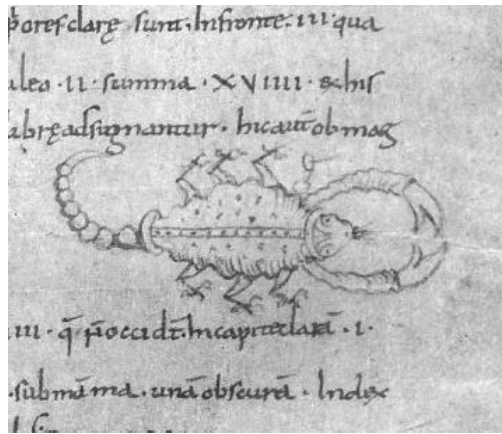 p̄ores clarę sunt. In fronte. III. qua
aleo. II. summa. XVIIII. & his
abręadsignantur. hicaut̄ obmag
III. q̄ p̄occidt̄. In capite clarā. I.
. sub māma. unā obscurā. Index